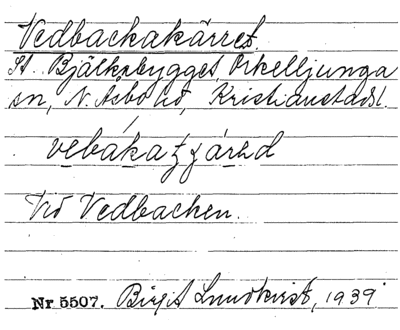 Vedbackakärret.
St. Bjälkabygget, Örkelljunga
sn, N. Åsbo hd, Kristianstads l.
Vid Vedbacken.
Nr 5507. Birgit Lundkvist, 1939